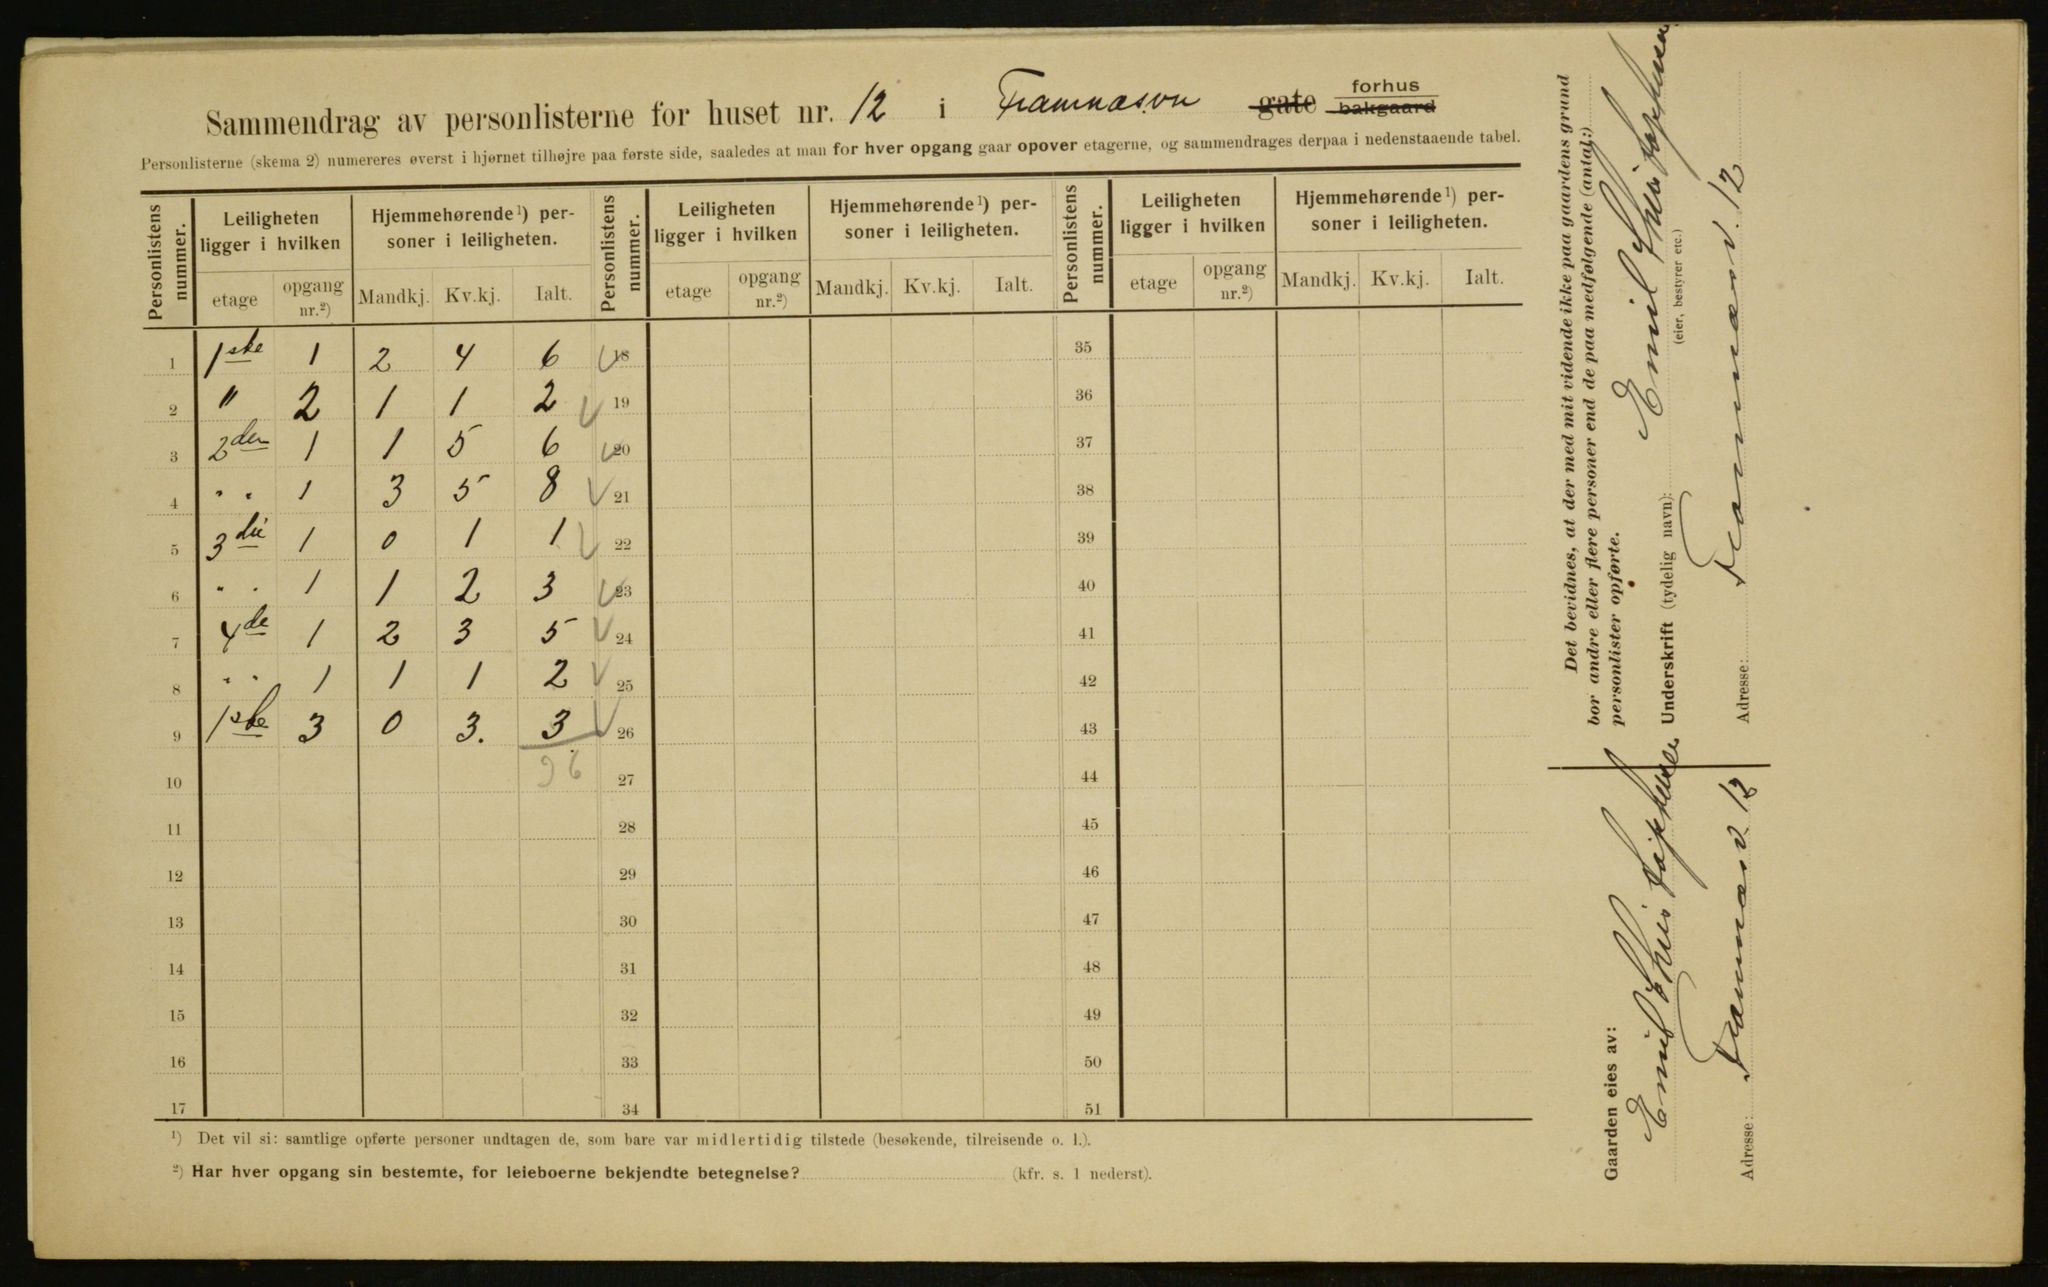 Sammendrag av personlisterne for huset nr. 12 i Framnæsvn gate forhus bakgaard
Personlisterne (skema 2) numereres øverst i hjørnet tilhøjre paa første side, saaledes at man for hver opgang gaar opover etagerne, og sammendrages derpaa i nedenstaaende tabel.
Personlistens nummer. Leiligheten ligger i hvilken Hjemmehørende 1) personer i leiligheten. Personlistens nummer. Leiligheten ligger i hvilken Hjemmehørende 1) personer i leiligheten. Personlistens nummer. Leiligheten ligger i hvilken Hjemmehørende 1) personer i leiligheten.
etage opgang nr.2) Mandkj. Kv.kj. Ialt. etage opgang nr.2) Mandkj. Kv.kj. Ialt. etage opgang nr.2) Mandkj. Kv.kj. Ialt.
1 1ste 1 2 4 6 18 35
2 " 2 1 1 2 19 36
3 2den 1 1 5 6 20 37
4 " " 1 3 5 8 21 38
5 3die 1 0 1 1 22 39
6 " " 1 1 2 3 23 40
7 4de 1 2 3 5 24 41
8 " " 1 1 1 2 25 42
9 1ste 3 0 3. 3 26 43
10 36 27 44
11 28 45
12 29 46
13 30 47
14 31 48
15 32 49
16 33 50
17 34 51
1) Det vil si: samtlige opførte personer undtagen de, som bare var midlertidig tilstede (besøkende, tilreisende o. l.).
2) Har hver opgang sin bestemte, for leieboerne bekjendte betegnelse? (kfr. s. 1 nederst).
Det bevidnes, at der med mit vidende ikke paa gaardens grund
bor andre eller flere personer end de paa medfølgende (antal:)
personlister opførte.
Underskrift (tydelig navn): Emil Christophersen
(eier, bestyrer etc.)
Adresse: Framnæsv. 12
Gaarden eies av:
Emil Christophersen
Adresse: Framnæsv 12